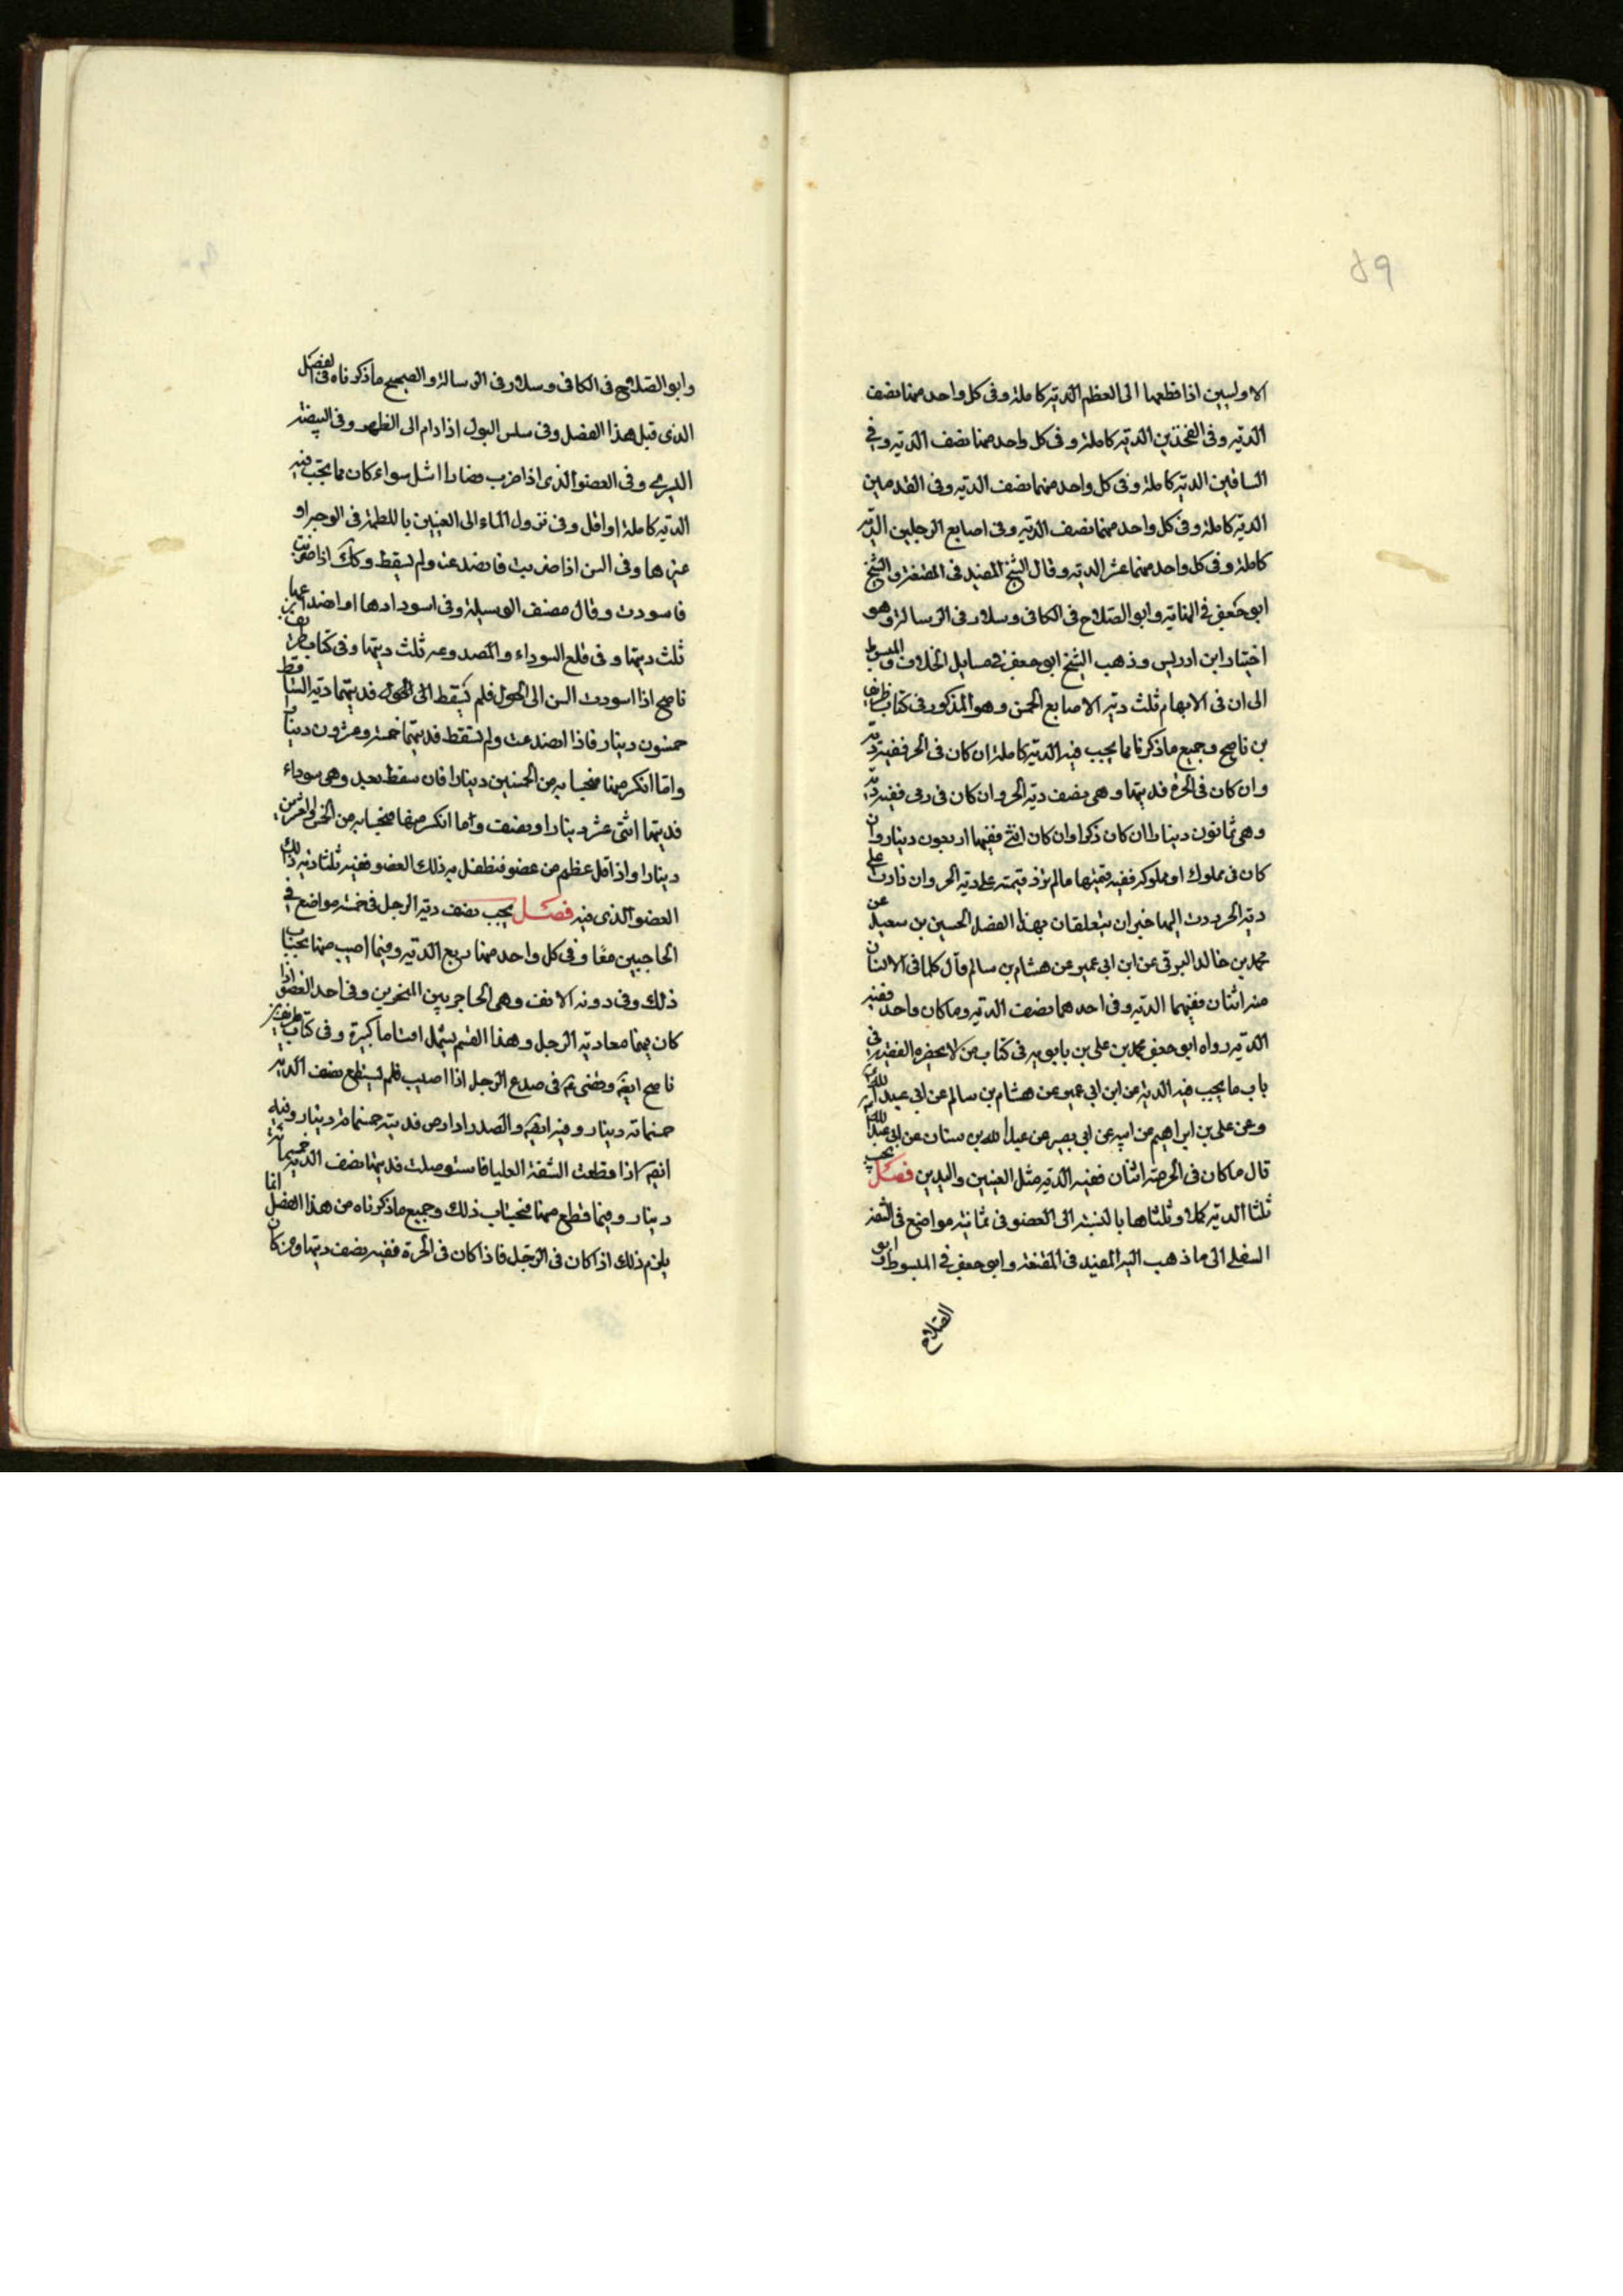 ٥٩
الاوليين اذا قطعها الى العظم الديه كاملة وفى كل واحد منهما نصف
الديه وفى الفخذين الديه كاملة وفى كل واحد منهما نصف الديه وفي
الساقين الديه كاملة وفى كل واحد منهما نصف الديه وفى القدمين
الديه كاملة وفى كل واحد منهما نصف الديه وفى اصابع الرجلين الديه
كاملة وفى كل واحد منهما عشر الديه وقال الشيخ المفيد فى المقنعة والشيخ
ابو جعفر في النهايه وابو الصلاح فى الكافى وسلار فى الرسالة وهو
اختيار ابن ادريس وذهب الشيخ ابو جعفر في مسايل الخلاف والمبسوط
الى ان فى الابهام ثلث ديه الاصابع الخمس وهو المذكور فى كتاب ظريف
بن ناصح وجميع ما ذكرنا مما يجب فيه الديه كاملة ان كان فى الحر ففيه ديه
وان كان فى الحرة فديتها وهى نصف ديه الحر وان كان فى ذمى ففيه ديه
وهى ثمانون دينارا ان كان ذكرا وان كان انثى ففيها اربعون دينار وان
كان فى مملوك او مملوكه ففيه قيمتها مالم تزد قيمته على ديه الحر وان زادت على
ديه الحر ردت اليها خبران يتعلقان بهذا الفصل الحسين بن سعيد عن
محمد بن خالد البرقى عن ابن ابى عمير عن هشام بن سالم قال كلما فى الانسان
منه اثنان ففيهما الديه وفى احدهما نصف الديه وما كان واحد ففيه
الديه رواه ابو جعفر محمد بن على بن بابويه فى كتاب من لا يحضره الفقيه في
باب ما يجب فيه الديه عن ابن ابى عمير عن هشام بن سالم عن ابى عبد الله
وعن على بن ابراهيم عن ابيه عن ابى بصير عن عبد الله بن سنان عن ابى عبد الله
قال ما كان فى الجسد اثنان ففيه الديه مثل العينين واليدين فصل يجب
ثلثا الديه كملا وثلثاها بالنسبة الى العضو فى ثمانية مواضع فى الشفة
السفلى الى ما ذهب اليه المفيد فى المقنعة وابو جعفر في المبسوط وابو
الصلاح
وابو الصلاح فى الكافى وسلار فى الرسالة والصحيح ما ذكرناه فى الفصل
الذى قبل هذا الفصل وفى سلس البول اذا دام الى الظهر وفى البيضة
اليسرى وفى العضو الذى اذا ضرب فصار اشل سواء كان مما يجب فيه
الديه كاملة او اقل وفى نزول الماء الى العينين باللطمة فى الوجه او
غيرها وفى السن اذا ضربت فانصدعت ولم تسقط وكك اذا ضربت
فاسودت وقال مصنف الوسيلة وفى اسودادها او انصداعها
ثلث ديتها وفى قلع السوداء والمصدوعه ثلث ديتها وفى كتاب ظريف بن
ناصح اذا اسودت السن الى الحول فلم تسقط الى الحول فديتها ديه الساقط
خمسون دينار فاذا انصدعت ولم تسقط فديتها خمسة وعشرون دينار
واما انكسر منها فبحسابه من الخمسين دينارا فان سقط بعد وهى سوداء
فديتها اثنى عشر دينارا ونصف واما انكسر منها فبحسابه من الخمس والعشرين
دينارا واذا قل عظم من عضو فتطفل به ذلك العضو ففيه ثلثا ديه ذلك
العضو الذى فيه فصل يجب نصف ديه الرجل فى خمسة مواضع في
الحاجبين معا وفى كل واحد منهما ربع الديه وفيما اصيب منها بحساب
ذلك وفى دونه الانف وهى الحاجز بين المنخرين وفى احد العضو اذا
كان فيهما معا ديه الرجل وهذا القسم يشمل اقساما كثيرة وفى كتاب ظريف بن
ناصح ايضا وقضى ع فى صدع الرجل اذا اصيب فلم يستطع نصف الديه
خمسمائه دينار وفيه ايضا والصدر اذا رض فديته خمسمائة دينار وفيه
ايضا اذا قطعت الشفة العليا فاستوصلت فديتها نصف الديه خمسمائة
دينار وفيما قطع منها فبحساب ذلك وجميع ما ذكرناه من هذا الفصل انما
يلزم ذلك اذا كان فى الرجل فاذا كان فى الحرة ففيه نصف ديتها ومن كان